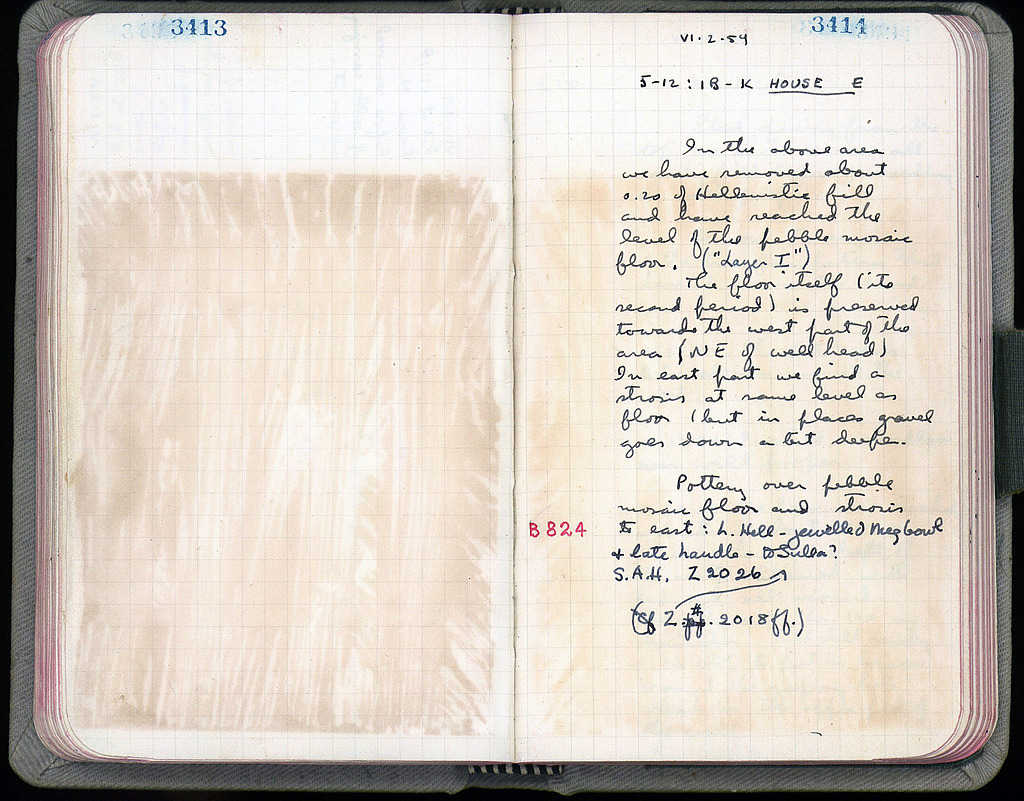 3413
3414
VI·2·54
5-12 : IB-K HOUSE E
In the above area
we have removed about
0.20 of Hellenistic fill
and have reached the
level of the pebble mosaic
floor. ("Layer I")
The floor itself (its
second period) is preserved
towards the west part of the
area (NE of well head)
In east part we find a
strosis at same level as
floor (but in places gravel
goes down a bit deeper.
Pottery over pebble
mosaic floor and strosis
B 824
to east : L. Hell - jewelled Meg bowl
+ late handle - to Sulla?
S.A.H. Z 2026
(cf Z # 2018 ff.)